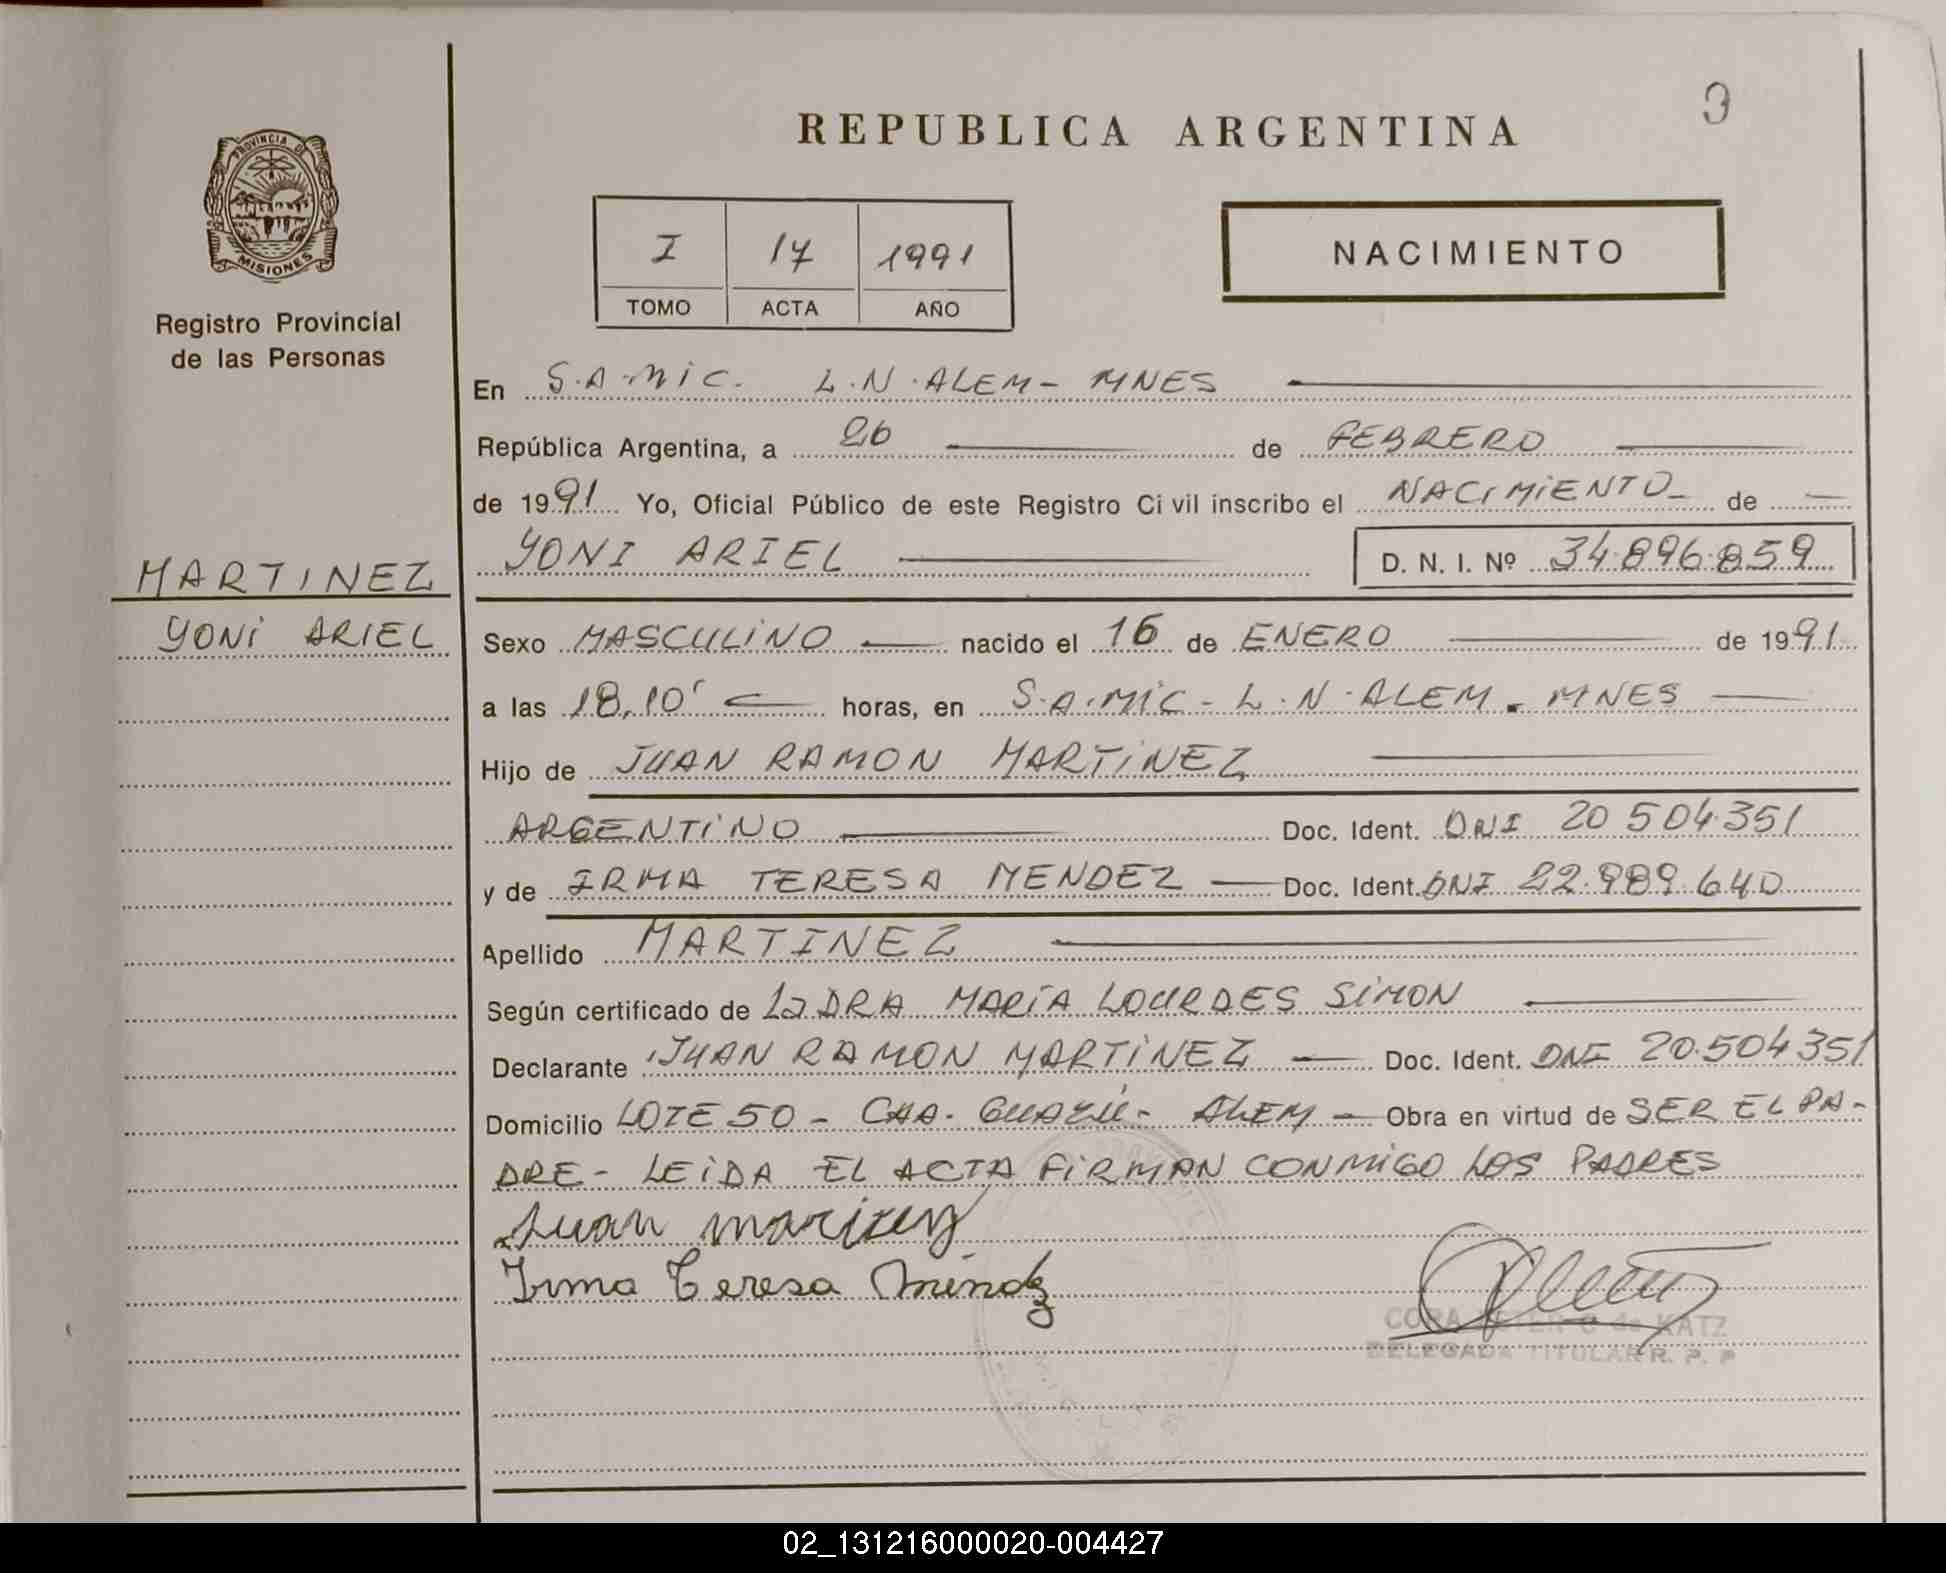 3
REPUBLICA ARGENTINA
PROVINCIA DE
MISIONES
Registro Provincial
de las Personas
I 17 1991
TOMO ACTA AÑO
NACIMIENTO
En S.A.MiC. L.N.ALEM- MNES
República Argentina, a 26 de FEBRERO
de 1991 Yo, Oficial Público de este Registro Civil inscribo el NACIMIENTO de
YONI ARIEL D. N. I. Nº 34.896.859
MARTINEZ
YONi ARIEL
Sexo MASCULINO nacido el 16 de ENERO de 1991
a las 18,10' horas, en S.A.MiC- L.N.ALEM. MNES
Hijo de JUAN RAMON MARTiNEZ
ARGENTiNO Doc. Ident. DNI 20 504.351
y de IRMA TERESA MENDEZ Doc. Ident. DNI 22.989.640
Apellido MARTINEZ
Según certificado de La DRA MARíA LOURDES SiMON
Declarante JUAN RAMON MARTiNEZ Doc. Ident. DNI 20.504351
Domicilio LOTE 50 - CAA- GUAZÚ- ALEM Obra en virtud de SER EL PA-
DRE- LEiDA EL ACTA FiRMAN CONMiGO LOS PADRES
Juan
Irma Teresa
de KATZ
DELEGADA TITULAR R. P. P
02_131216000020-004427